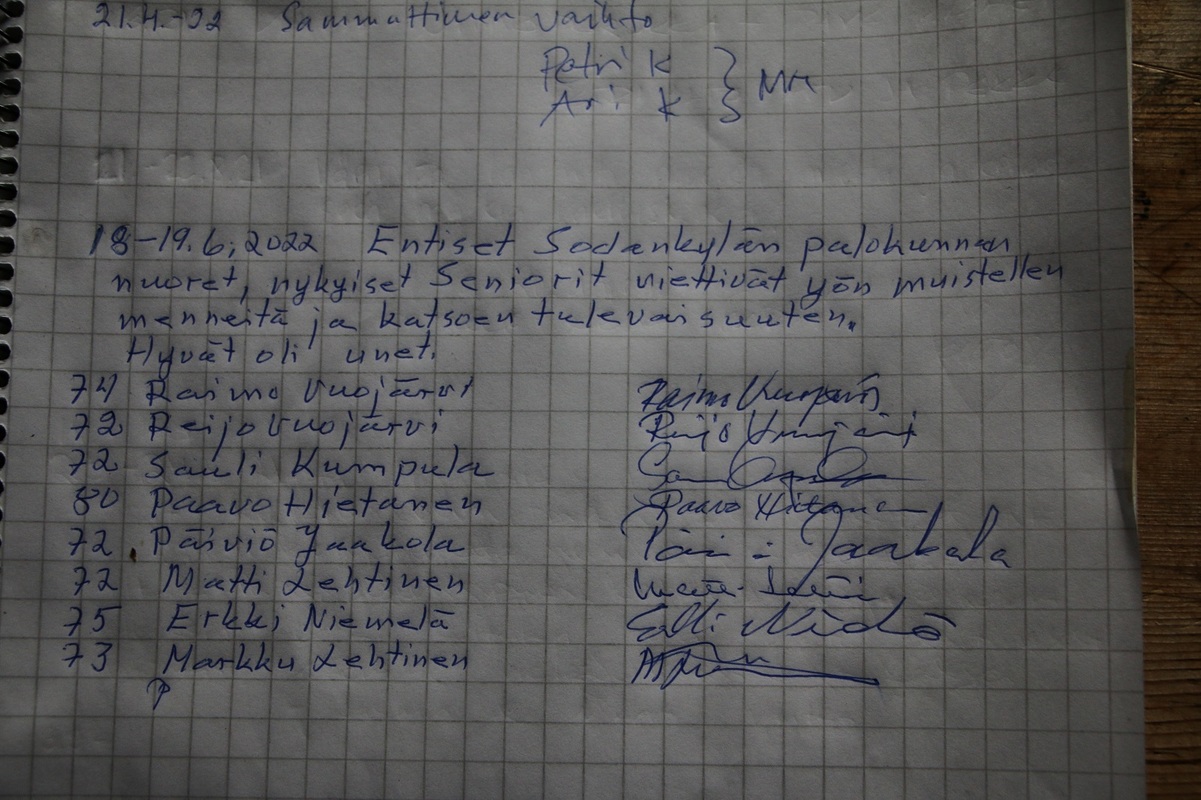 21.4.-22 Sammuttimen vaihto
Petri K
Ari K } MH
18-19.6.2022 Entiset Sodankylän palokunnan
nuoret, nykyiset Seniorit viettivät yön muistellen
menneitä ja katsoen tulevaisuuten.
Hyvät oli unet.
74 Raimo Vuojärvi Raimo Vuojärvi
72 Reijo Vuojärvi Reijo Vuojärvi
72 Sauli Kumpula
80 Paavo Hietanen Paavo Hietanen
72 Päiviö Jaakola Jaakola
72 Matti Lehtinen
75 Erkki Niemelä
73 Markku Lehtinen